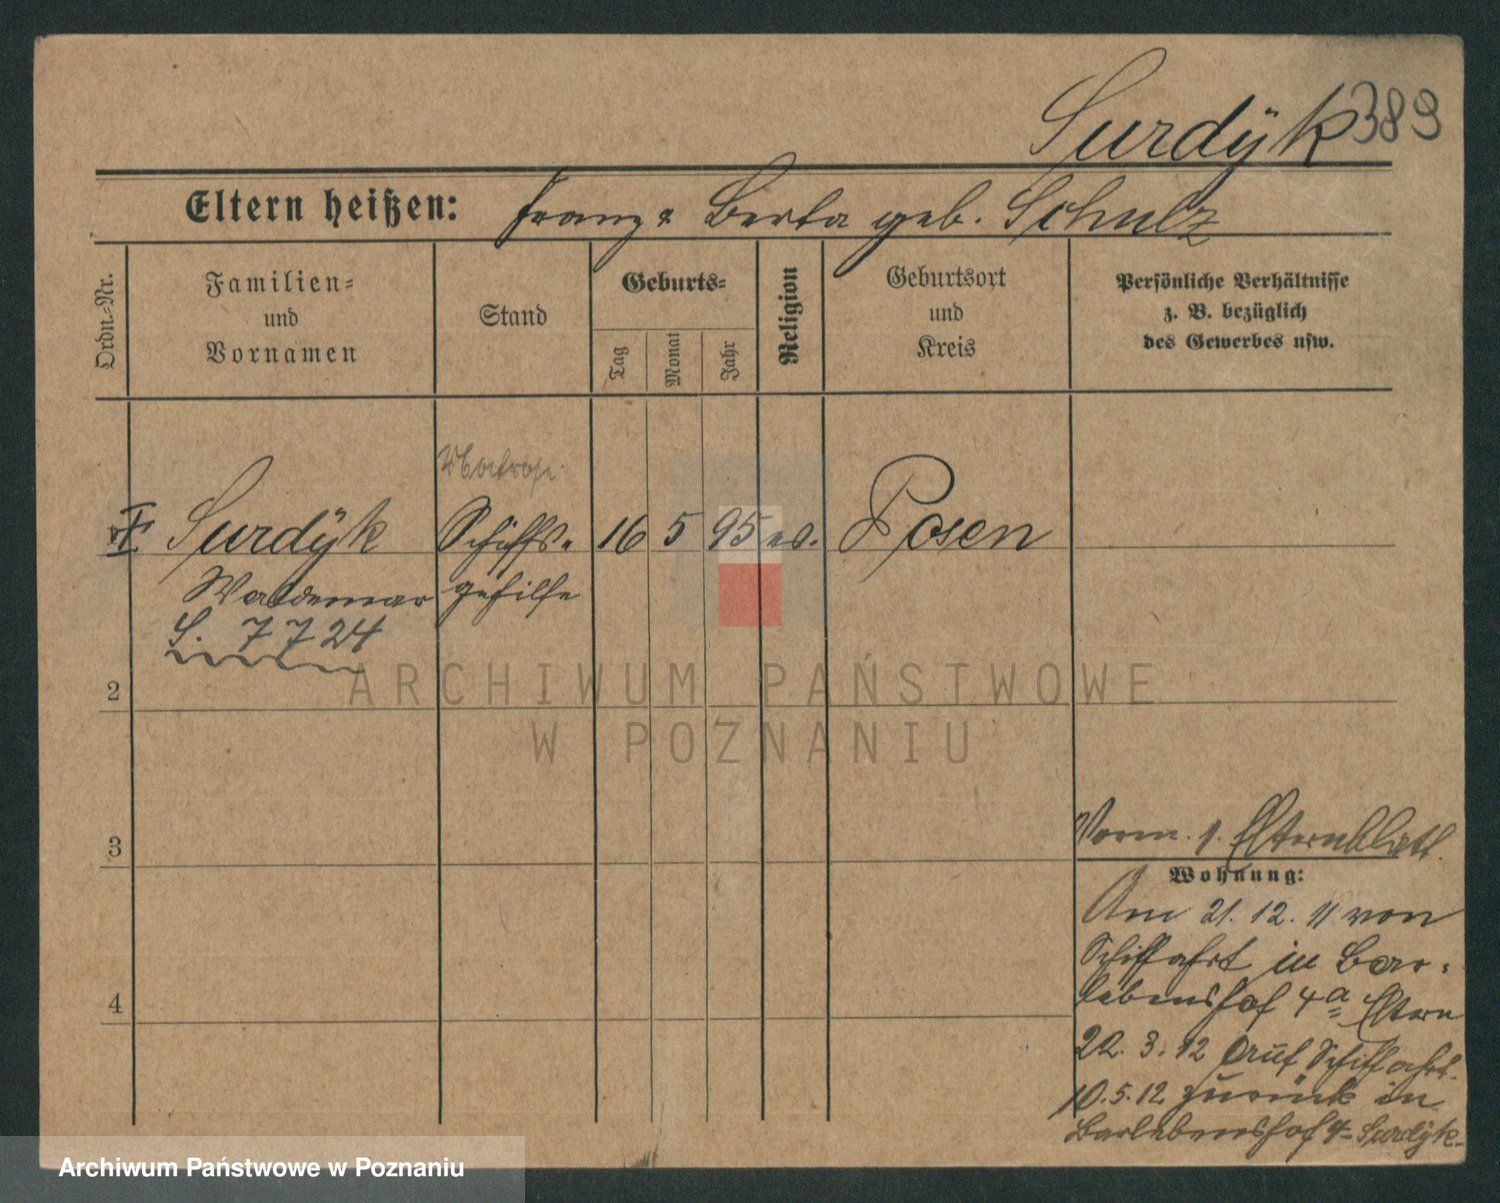 Surdÿk 389
Eltern heißen: Franz & Berta geb. Schulz
Ordn.=Nr.
Familien=
und
Vornamen
Stand
Geburts=
Tag
Monat
Jahr
Religion
Geburtsort
und
Kreis
Persönliche Verhältnisse
z. B. bezüglich
des Gewerbes usw.
Matrose
Surdÿk Schiffs= 16 5 95 ev. Posen
Waldemar gehilfe
S. 7 7 24
2
3
4
Vorm. 1. Elternblatt.
Wohnung:
Am 21. 12. 11 von
Schiffahrt in Bar=
lebenshof 4a Eltern
22. 3. 12 auf Schiffahrt.
10.5.12 zurück in
Barlebenshof 4 Surdÿk
ARCHIWUM PAŃSTWOWE
W POZNANIU
Archiwum Państwowe w Poznaniu